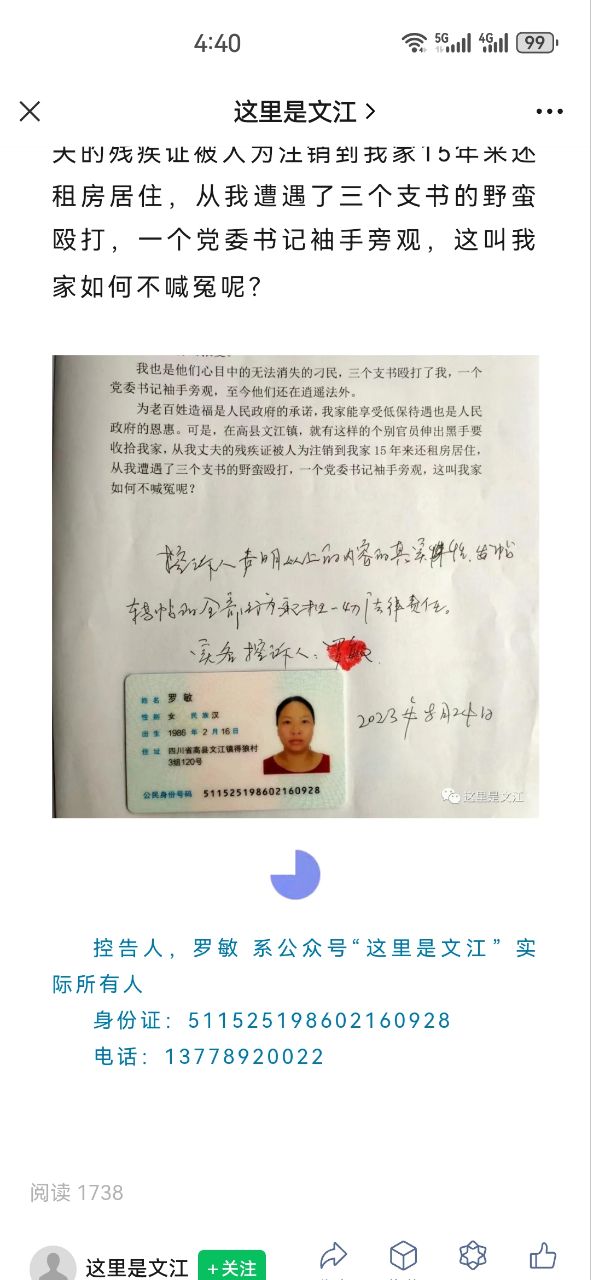 4:40
5G 4G 99
这里是文江
夫的残疾证被人为注销到我家15年来还
租房居住，从我遭遇了三个支书的野蛮
殴打，一个党委书记袖手旁观，这叫我
家如何不喊冤呢？
我也是他们心目中的无法消失的刁民，三个支书殴打了我，一个
党委书记袖手旁观，至今他们还在逍遥法外。
为老百姓造福是人民政府的承诺，我家能享受低保待遇也是人民
政府的恩惠。可是，在高县文江镇，就有这样的个别官员伸出黑手要
收拾我家，从我丈夫的残疾证被人为注销到我家15年来还租房居住，
从我遭遇了三个支书的野蛮殴打，一个党委书记袖手旁观，这叫我家
如何不喊冤呢？
控诉人声明以上的内容的真实性，发帖
转帖的全部行为承担一切法律责任。
实名控诉人：罗敏
2023年8月24日
姓名 罗敏
性别 女 民族 汉
出生 1986年2月16日
住址 四川省高县文江镇得狼村
3组120号
公民身份号码 511525198602160928
这里是文江
控告人，罗敏 系公众号“这里是文江”实
际所有人
身份证：511525198602160928
电话：13778920022
阅读 1738
这里是文江
+关注